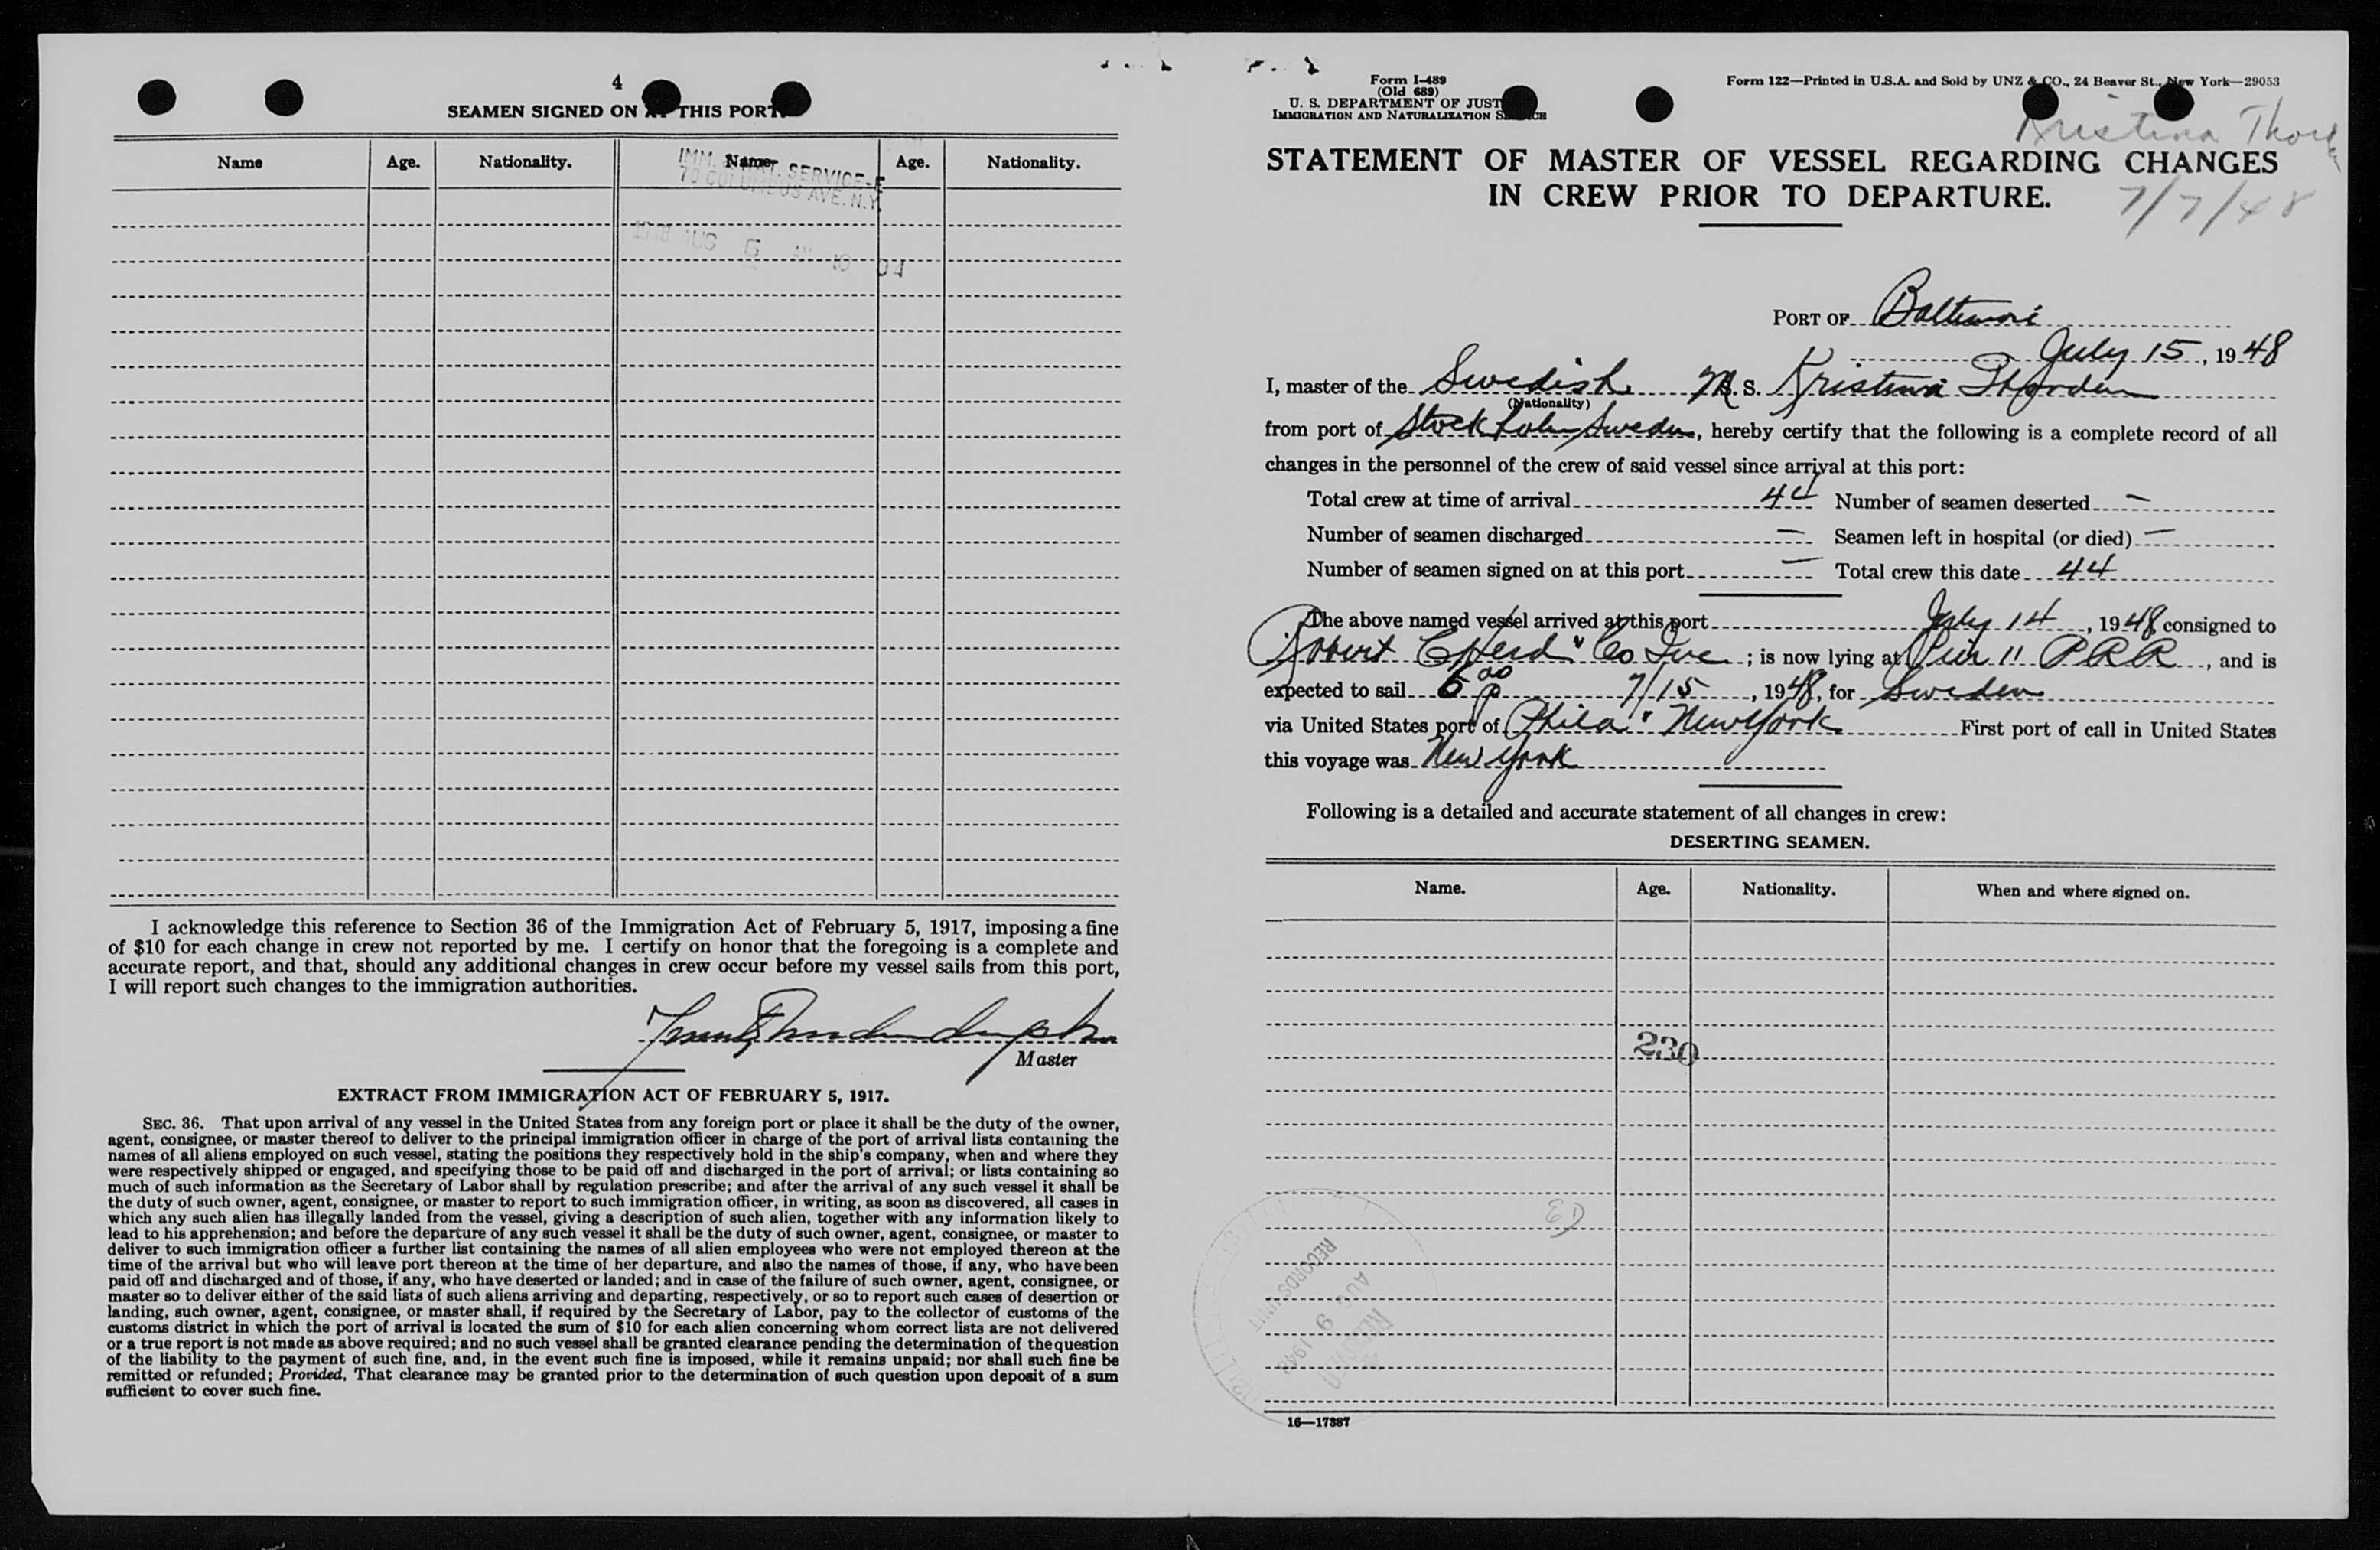 4
SEAMEN SIGNED ON AT THIS PORT.
Name Age. Nationality. Name Age. Nationality.
IMM. SERVICE-E
70 COLUMBUS AVE. N.Y.
AUG 6 10 04
I acknowledge this reference to Section 36 of the Immigration Act of February 5, 1917, imposing a fine
of $10 for each change in crew not reported by me. I certify on honor that the foregoing is a complete and
accurate report, and that, should any additional changes in crew occur before my vessel sails from this port,
I will report such changes to the immigration authorities.
Master
EXTRACT FROM IMMIGRATION ACT OF FEBRUARY 5, 1917.
SEC. 36. That upon arrival of any vessel in the United States from any foreign port or place it shall be the duty of the owner,
agent, consignee, or master thereof to deliver to the principal immigration officer in charge of the port of arrival lists containing the
names of all aliens employed on such vessel, stating the positions they respectively hold in the ship's company, when and where they
were respectively shipped or engaged, and specifying those to be paid off and discharged in the port of arrival; or lists containing so
much of such information as the Secretary of Labor shall by regulation prescribe; and after the arrival of any such vessel it shall be
the duty of such owner, agent, consignee, or master to report to such immigration officer, in writing, as soon as discovered, all cases in
which any such alien has illegally landed from the vessel, giving a description of such alien, together with any information likely to
lead to his apprehension; and before the departure of any such vessel it shall be the duty of such owner, agent, consignee, or master to
deliver to such immigration officer a further list containing the names of all alien employees who were not employed thereon at the
time of the arrival but who will leave port thereon at the time of her departure, and also the names of those, if any, who have been
paid off and discharged and of those, if any, who have deserted or landed; and in case of the failure of such owner, agent, consignee, or
master so to deliver either of the said lists of such aliens arriving and departing, respectively, or so to report such cases of desertion or
landing, such owner, agent, consignee, or master shall, if required by the Secretary of Labor, pay to the collector of customs of the
customs district in which the port of arrival is located the sum of $10 for each alien concerning whom correct lists are not delivered
or a true report is not made as above required; and no such vessel shall be granted clearance pending the determination of the question
of the liability to the payment of such fine, and, in the event such fine is imposed, while it remains unpaid; nor shall such fine be
remitted or refunded; Provided, That clearance may be granted prior to the determination of such question upon deposit of a sum
sufficient to cover such fine.
Form I-489
(Old 689)
U. S. DEPARTMENT OF JUSTICE
IMMIGRATION AND NATURALIZATION SERVICE
Form 122—Printed in U.S.A. and Sold by UNZ & CO., 24 Beaver St., New York—29053
Kristina Thorden
STATEMENT OF MASTER OF VESSEL REGARDING CHANGES
IN CREW PRIOR TO DEPARTURE.
7/7/48
PORT OF Baltimore
July 15, 1948
I, master of the Swedish M. S. Kristina Thorden
(Nationality)
from port of Stockholm Sweden, hereby certify that the following is a complete record of all
changes in the personnel of the crew of said vessel since arrival at this port:
Total crew at time of arrival 44 Number of seamen deserted —
Number of seamen discharged — Seamen left in hospital (or died) —
Number of seamen signed on at this port — Total crew this date 44
The above named vessel arrived at this port July 14, 1948, consigned to
Robert C Herd & Co Inc; is now lying at Pier 11 PRR, and is
expected to sail 5 00 p 7/15, 1948, for Sweden
via United States port of Phila & New York First port of call in United States
this voyage was New York
Following is a detailed and accurate statement of all changes in crew:
DESERTING SEAMEN.
Name. Age. Nationality. When and where signed on.
230
RECORDS UNIT
AUG 9 1948
16—17387